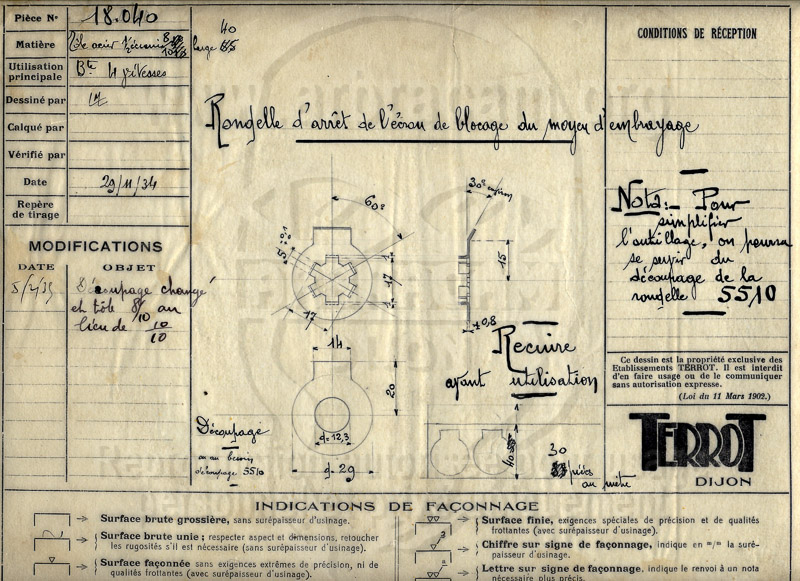 Pièce N° 18.040
Matière Tôle acier 8/10
40
large
Utilisation principale Bte 4 vitesses
Dessiné par
Calqué par
Vérifié par
Date 29/11/34
Repère de tirage
MODIFICATIONS
DATE OBJET
Découpage changé
et tôle 8/10 au
lieu de 10/10
Rondelle d'arrêt de l'écrou de blocage du moyeu d'embrayage
60°
30° environ
17
15
17
0,8
14
20
d=12,3
d=29
Découpage
ou au besoin
découpage 5510
Recuire
avant utilisation
40
30
pièces
au mètre
CONDITIONS DE RÉCEPTION
Nota:- Pour
simplifier
l'outillage, on pourra
se servir du
découpage de la
rondelle 5510
Ce dessin est la propriété exclusive des
Etablissements TERROT. Il est interdit
d'en faire usage ou de le communiquer
sans autorisation expresse.
(Loi du 11 Mars 1902.)
TERROT
DIJON
INDICATIONS DE FAÇONNAGE
Surface brute grossière, sans surépaisseur d'usinage.
Surface brute unie; respecter aspect et dimensions, retoucher
les rugosités s'il est nécessaire (sans surépaisseur d'usinage).
Surface façonnée sans exigences extrêmes de précision, ni de
qualités frottantes (avec surépaisseur d'usinage).
Surface finie, exigences spéciales de précision et de qualités
frottantes (avec surépaisseur d'usinage).
3
Chiffre sur signe de façonnage, indique en m/m la suré-
paisseur d'usinage.
Lettre sur signe de façonnage, indique le renvoi à un nota
nécessaire plus précis.